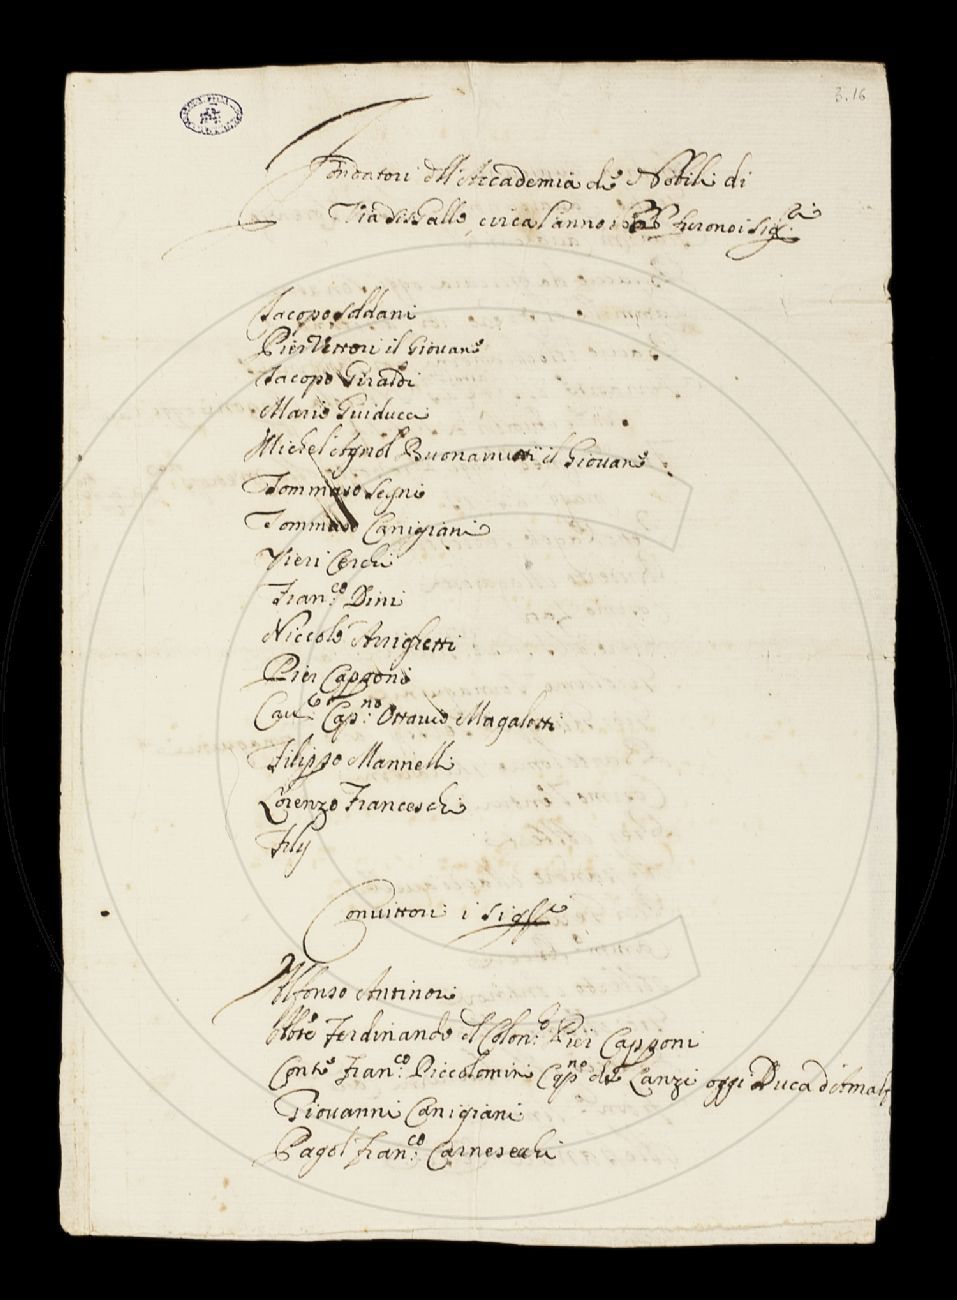 3.16
Fondatori dll'Accademia de Nobili di
Via S. Gallo, circa l'anno furono i Sig.ri
Jacopo Soldani
Pier Vettori il Giovane
Jacopo Giraldi
Mario Guiducci
Michel Agnol Buonarruoti il Giovane
Tommaso Segni
Tommaso Canigiani
Vieri Cerchi
Fran:co Dini
Niccolò Arrighetti
Pier Capponi
Cav:e Cap:no Ottavio Magalotti
Filippo Mannelli
Lorenzo Franceschi
Convittori i Sig.ri
Alfonso Antinori
Ferdinando del Colon:o Pier Capponi
Conte Fran:co Piccolomini Cap:no de Lanzi oggi Duca d'Amalf
Giovanni Canigiani
Pagol Fran:co Carnesechi